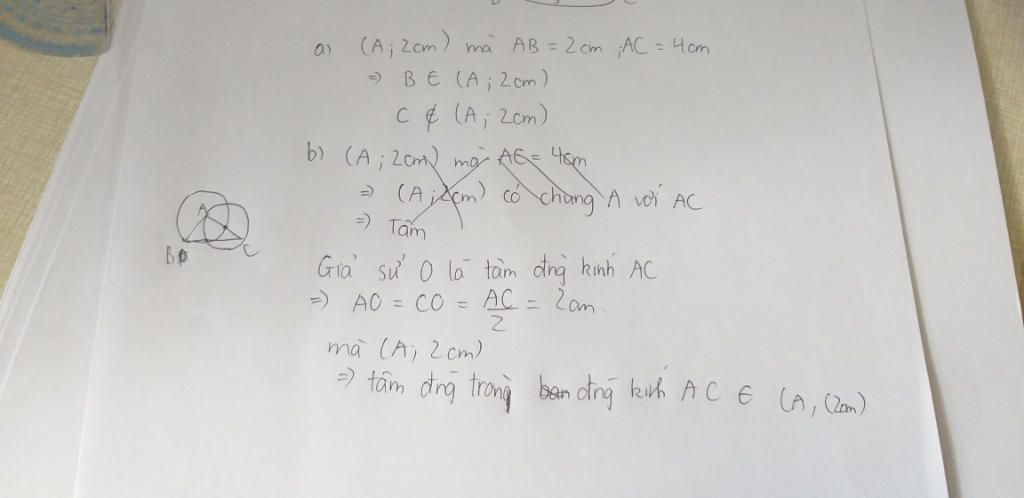 a) (A; 2cm) mà AB = 2cm ; AC = 4cm
⇒ B ∈ (A; 2cm)
C ∉ (A; 2cm)
b) (A; 2cm) mà AC = 4cm
⇒ (A; 2cm) có chung A với AC
⇒ Tâm
A
B
C
Giả sử O là tâm đng kính AC
⇒ AO = CO = AC/2 = 2cm.
mà (A; 2cm)
⇒ tâm đng trong đng kính AC ∈ (A, (2cm)